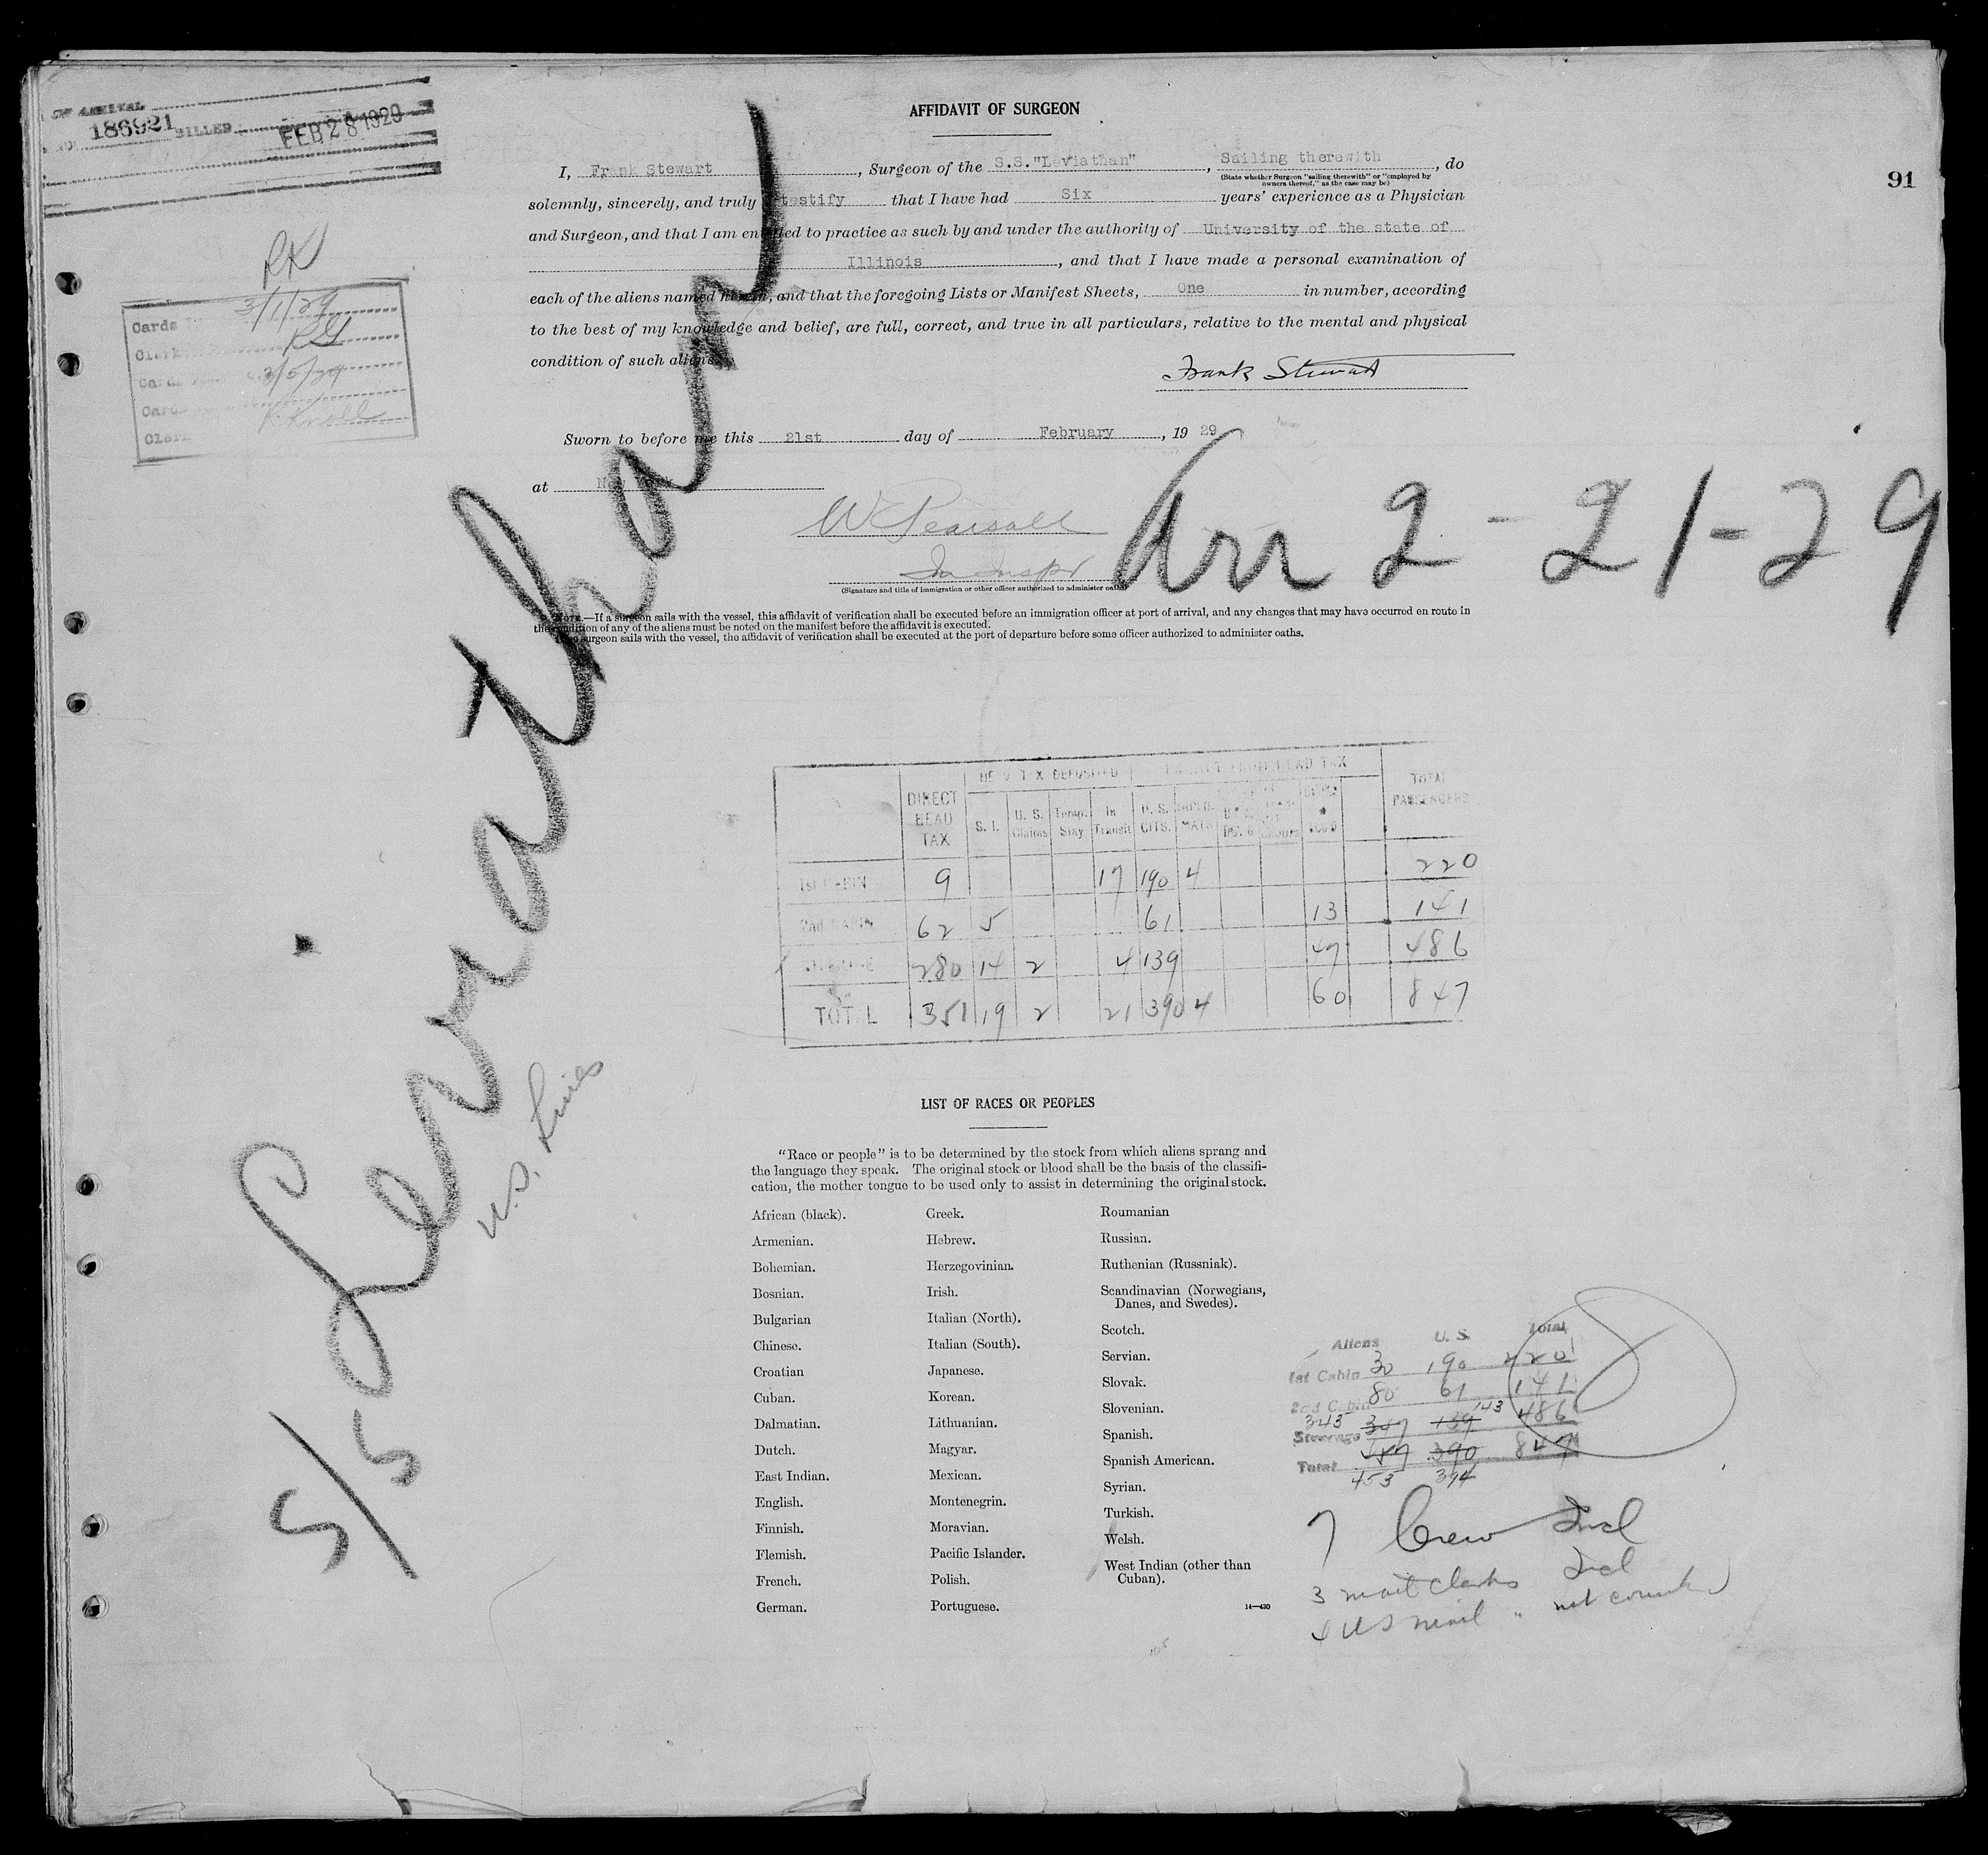 OF ARRIVAL
186921 BILLED FEB 28 1929
91
AFFIDAVIT OF SURGEON
I, Frank Stewart, Surgeon of the S.S."Leviathan", Sailing therewith, do
(State whether Surgeon "sailing therewith" or "employed by
owners thereof," as the case may be)
solemnly, sincerely, and truly testify that I have had Six years' experience as a Physician
and Surgeon, and that I am entitled to practice as such by and under the authority of University of the state of
Illinois, and that I have made a personal examination of
each of the aliens named herein, and that the foregoing Lists or Manifest Sheets, One in number, according
to the best of my knowledge and belief, are full, correct, and true in all particulars, relative to the mental and physical
condition of such aliens.
Frank Stewart
Sworn to before me this 21st day of February, 19 29
at
W Pearsall
Im Inspr
(Signature and title of immigration or other officer authorized to administer oaths)
Arr 2-21-29
NOTE.—If a surgeon sails with the vessel, this affidavit of verification shall be executed before an immigration officer at port of arrival, and any changes that may have occurred en route in
the condition of any of the aliens must be noted on the manifest before the affidavit is executed.
If no surgeon sails with the vessel, the affidavit of verification shall be executed at the port of departure before some officer authorized to administer oaths.
RK
Cards 3/1/29
Clerk RG
Cards 3/5/29
Cards
Clerk R. Knoll
S/S Leviathan
U.S. Lines
HEAD TAX DEPOSITED EXEMPT FROM HEAD TAX
DIRECT HEAD TAX S. I. U. S. Claims Temp. Stay In Transit U. S. CITS. TOTAL PASSENGERS
1st CABIN 9 17 190 4 220
2nd CABIN 62 5 61 13 141
STEERAGE 280 14 2 4 139 47 486
TOTAL 351 19 2 21 390 4 60 847
LIST OF RACES OR PEOPLES
"Race or people" is to be determined by the stock from which aliens sprang and
the language they speak. The original stock or blood shall be the basis of the classifi-
cation, the mother tongue to be used only to assist in determining the original stock.
African (black).
Armenian.
Bohemian.
Bosnian.
Bulgarian
Chinese.
Croatian
Cuban.
Dalmatian.
Dutch.
East Indian.
English.
Finnish.
Flemish.
French.
German.
Greek.
Hebrew.
Herzegovinian.
Irish.
Italian (North).
Italian (South).
Japanese.
Korean.
Lithuanian.
Magyar.
Mexican.
Montenegrin.
Moravian.
Pacific Islander.
Polish.
Portuguese.
Roumanian
Russian.
Ruthenian (Russniak).
Scandinavian (Norwegians,
Danes, and Swedes).
Scotch.
Servian.
Slovak.
Slovenian.
Spanish.
Spanish American.
Syrian.
Turkish.
Welsh.
West Indian (other than
Cuban).
14—430
Aliens U. S. Total
1st Cabin 30 190 220
2nd Cabin 80 61 141
Steerage 343 347 139 143 486
Total 457 390 847
453 394
7 Crew Incl
3 mail clerks Incl
4 US mail " not counted